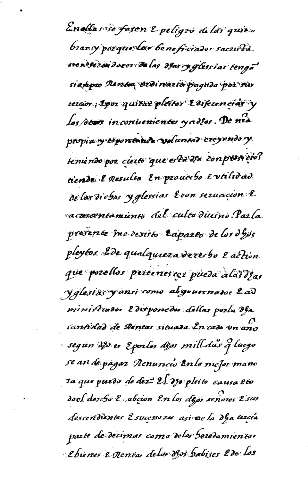 En ella no fasen E peligro de las quie-
bras y porque los beneficiados sacristanes
servidores de las dhas yglesias tengan
siempre Renta ordinaria pagada por sus
tercios, E por quitar pleitos E diferencias y
los otros inconvenientes y a dos. De mi
propia y espontanea voluntad creyendo y
teniendo por cierto que esta dha
E Resulta En provecho E utilidad
de las dichas yglesias E con servacion E
acrecentamiento del culto divino Por la
presente me desisto E aparto de los dhos
pleytos E de qualquiera derecho E action
que por ellos pertenescer pueda a las dhas
yglesias y ansi como a governador E ad
ministrador E disponedor dellas por la dha
cantidad de Rentas situada En cada un año
segun dho es E por los dhos mill que luego
se an de pagar Renuncio En la mejor mane
ra que puedo de dro El dho pleito causa E to
do el derecho E action En los dhos señores E sus
descendientes E sucesores asi en la dha tercia
parte de decimas como de los heredamientos
E bienes E Rentas de los dhos E de los